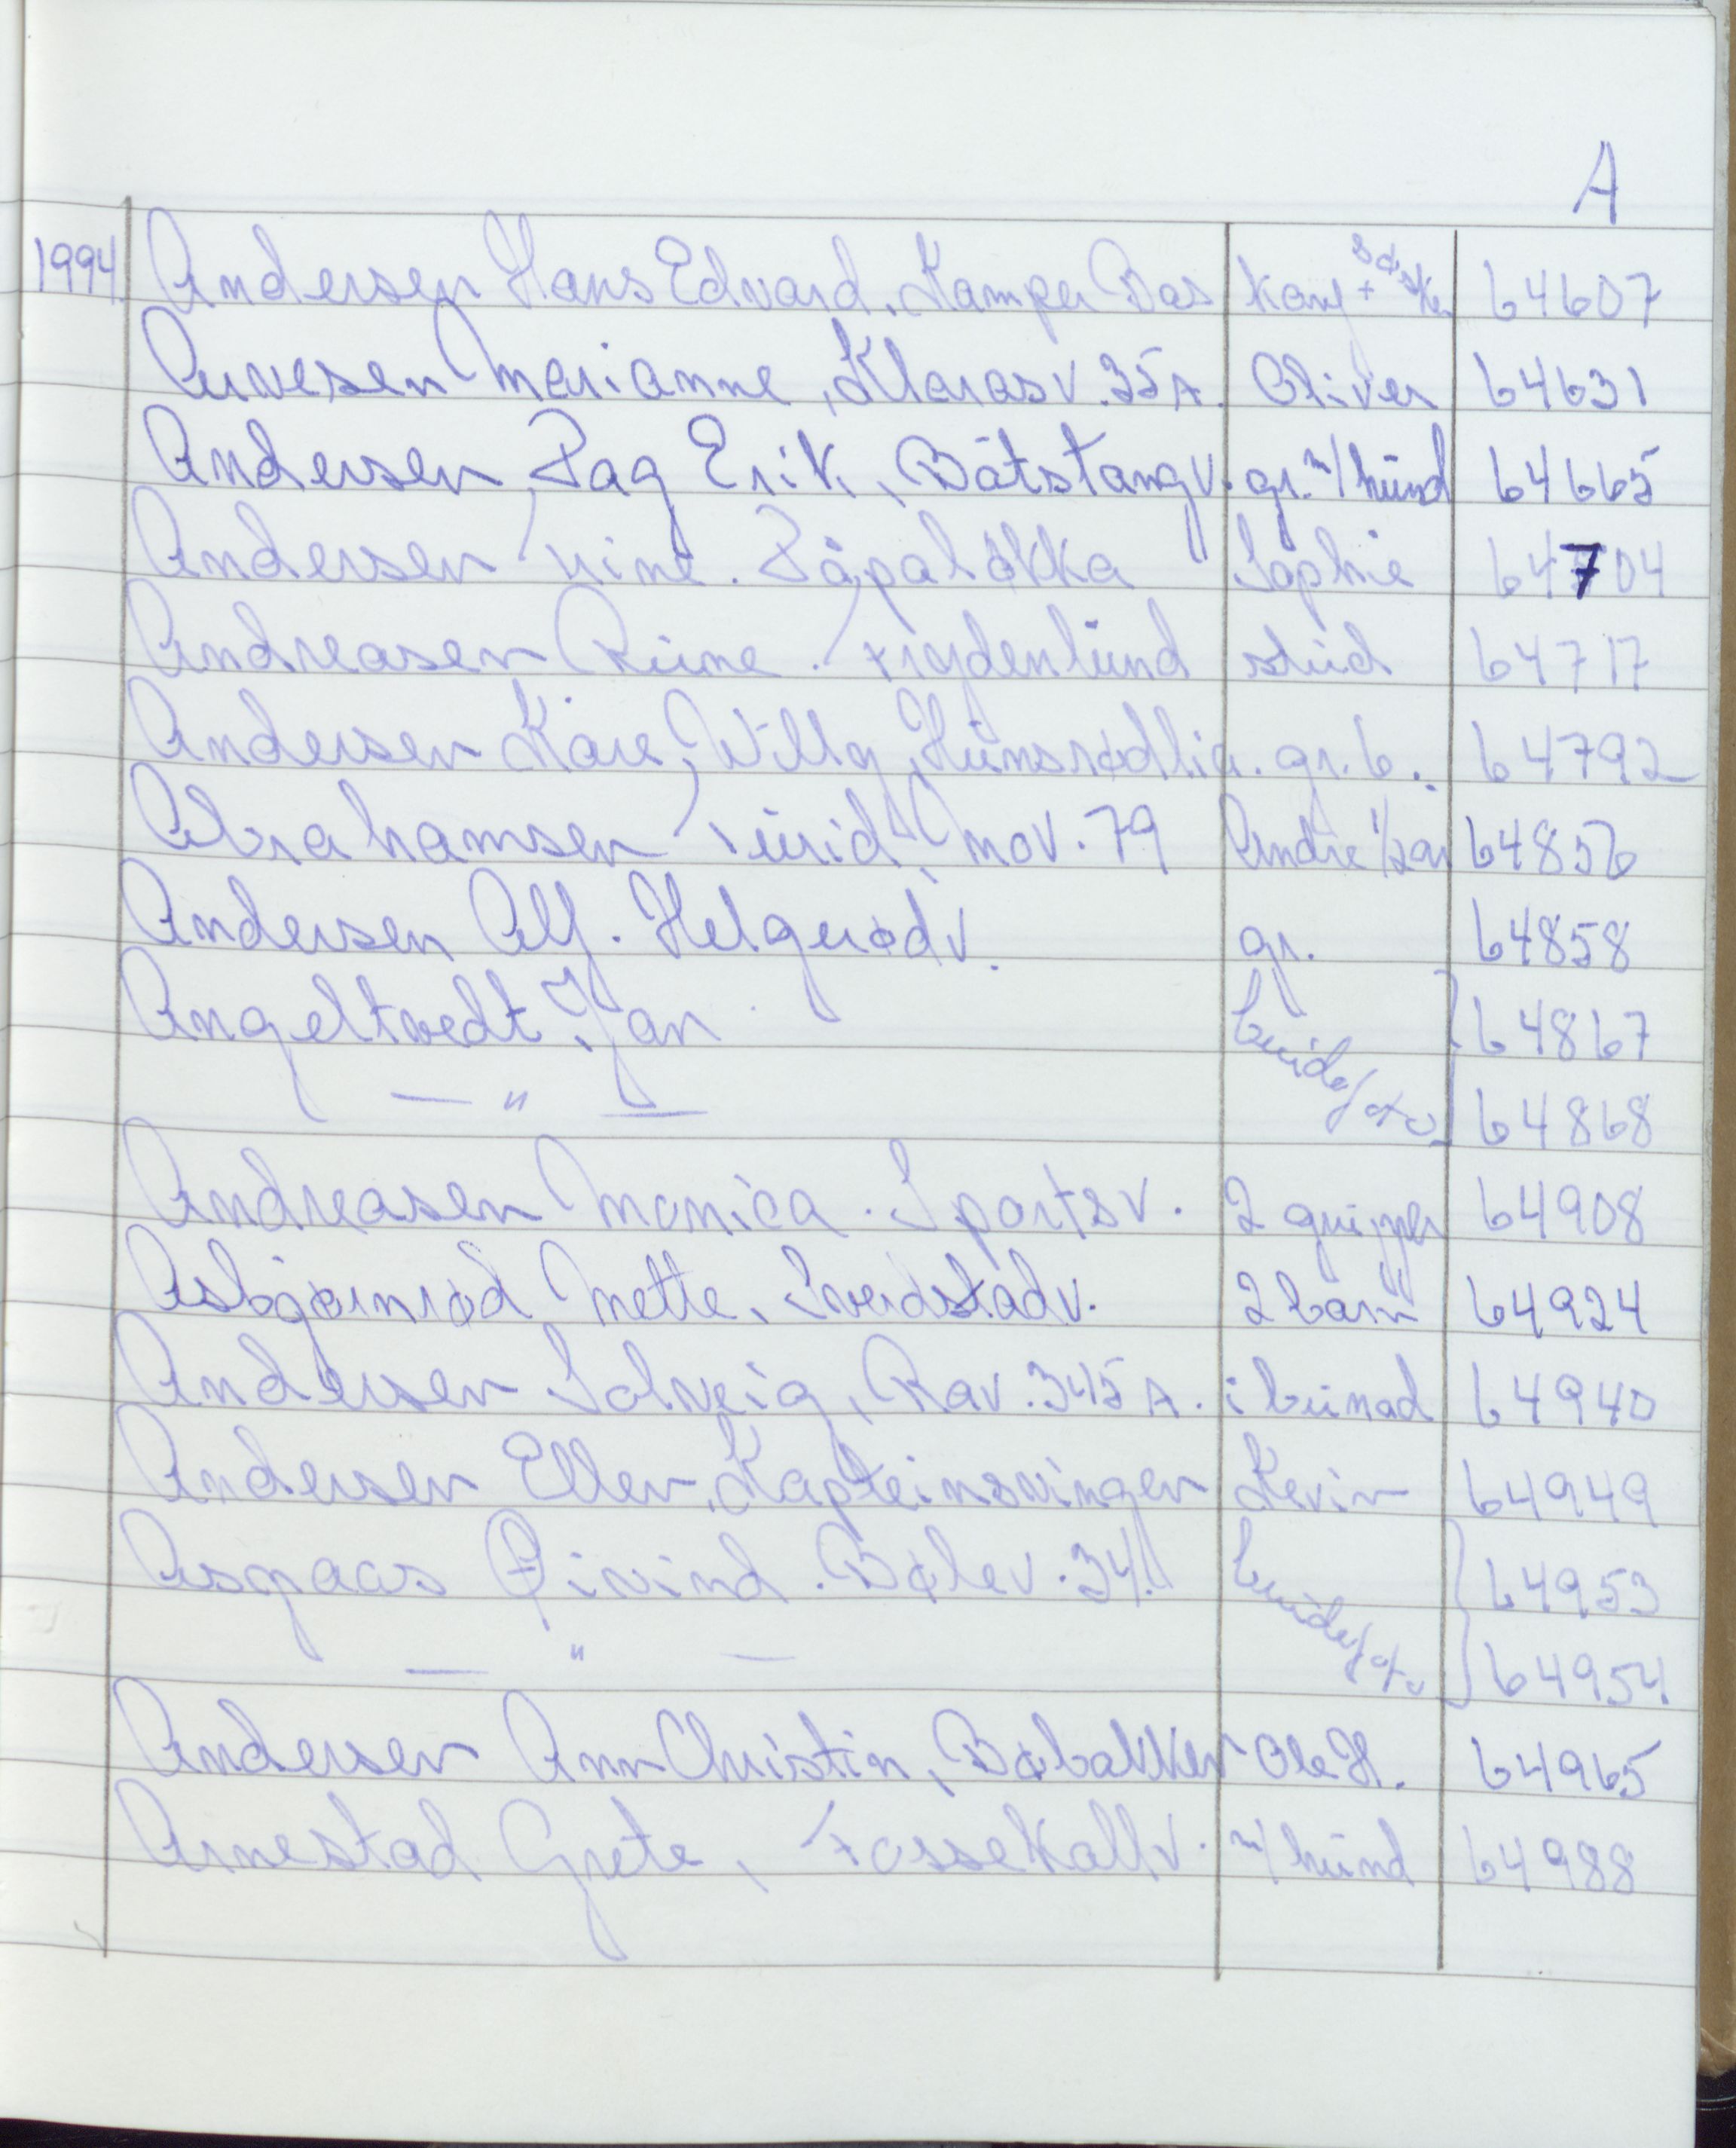 A
1994 Andersen Hans Edvard. Kamper Bas Konf + søsken 64607
Arvesen Marianne, Klarasv. 35A. Oliver 64631
Andersen Dag Erik, Båtstangv. gr. m/hund 64665
Andersen Line. Dåpaløkka Sophie 64704
Andreasen Rune. Frydenlund stud 64717
Andersen Kåre Willy, Hunsrødlia. gr. b. 64792
Abrahamsen Turid, Mov. 79 Andre 1/2 år 64856
Andersen Alf. Helgerødv. gr. 64858
Angeltvedt, Jan brudef/oto 64867
— " — 64868
Andreasen Monica. Sportsv. 2 grupper 64908
Asbjørnrød Mette, Sverdstadv. 2 barn 64924
Andersen Solveig, Rav. 345A. i bunad 64940
Andersen Ellen, Kapteinsvingen Kevin 64949
Asgaas Øivind. Bølev. 34. brudef/oto 64953
— " — 64954
Andersen Ann Christin, Bøbakken Ole H. 64965
Arnestad Grete, Fossekallv. m/hund 64988